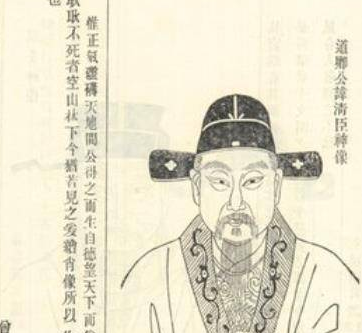 道鄉公諱清臣神像
惟正氣瀰満天地間公得之而生自德望天下而
耿耿不死者空山林下今猶若見之爰繪肖像所以
也
曾